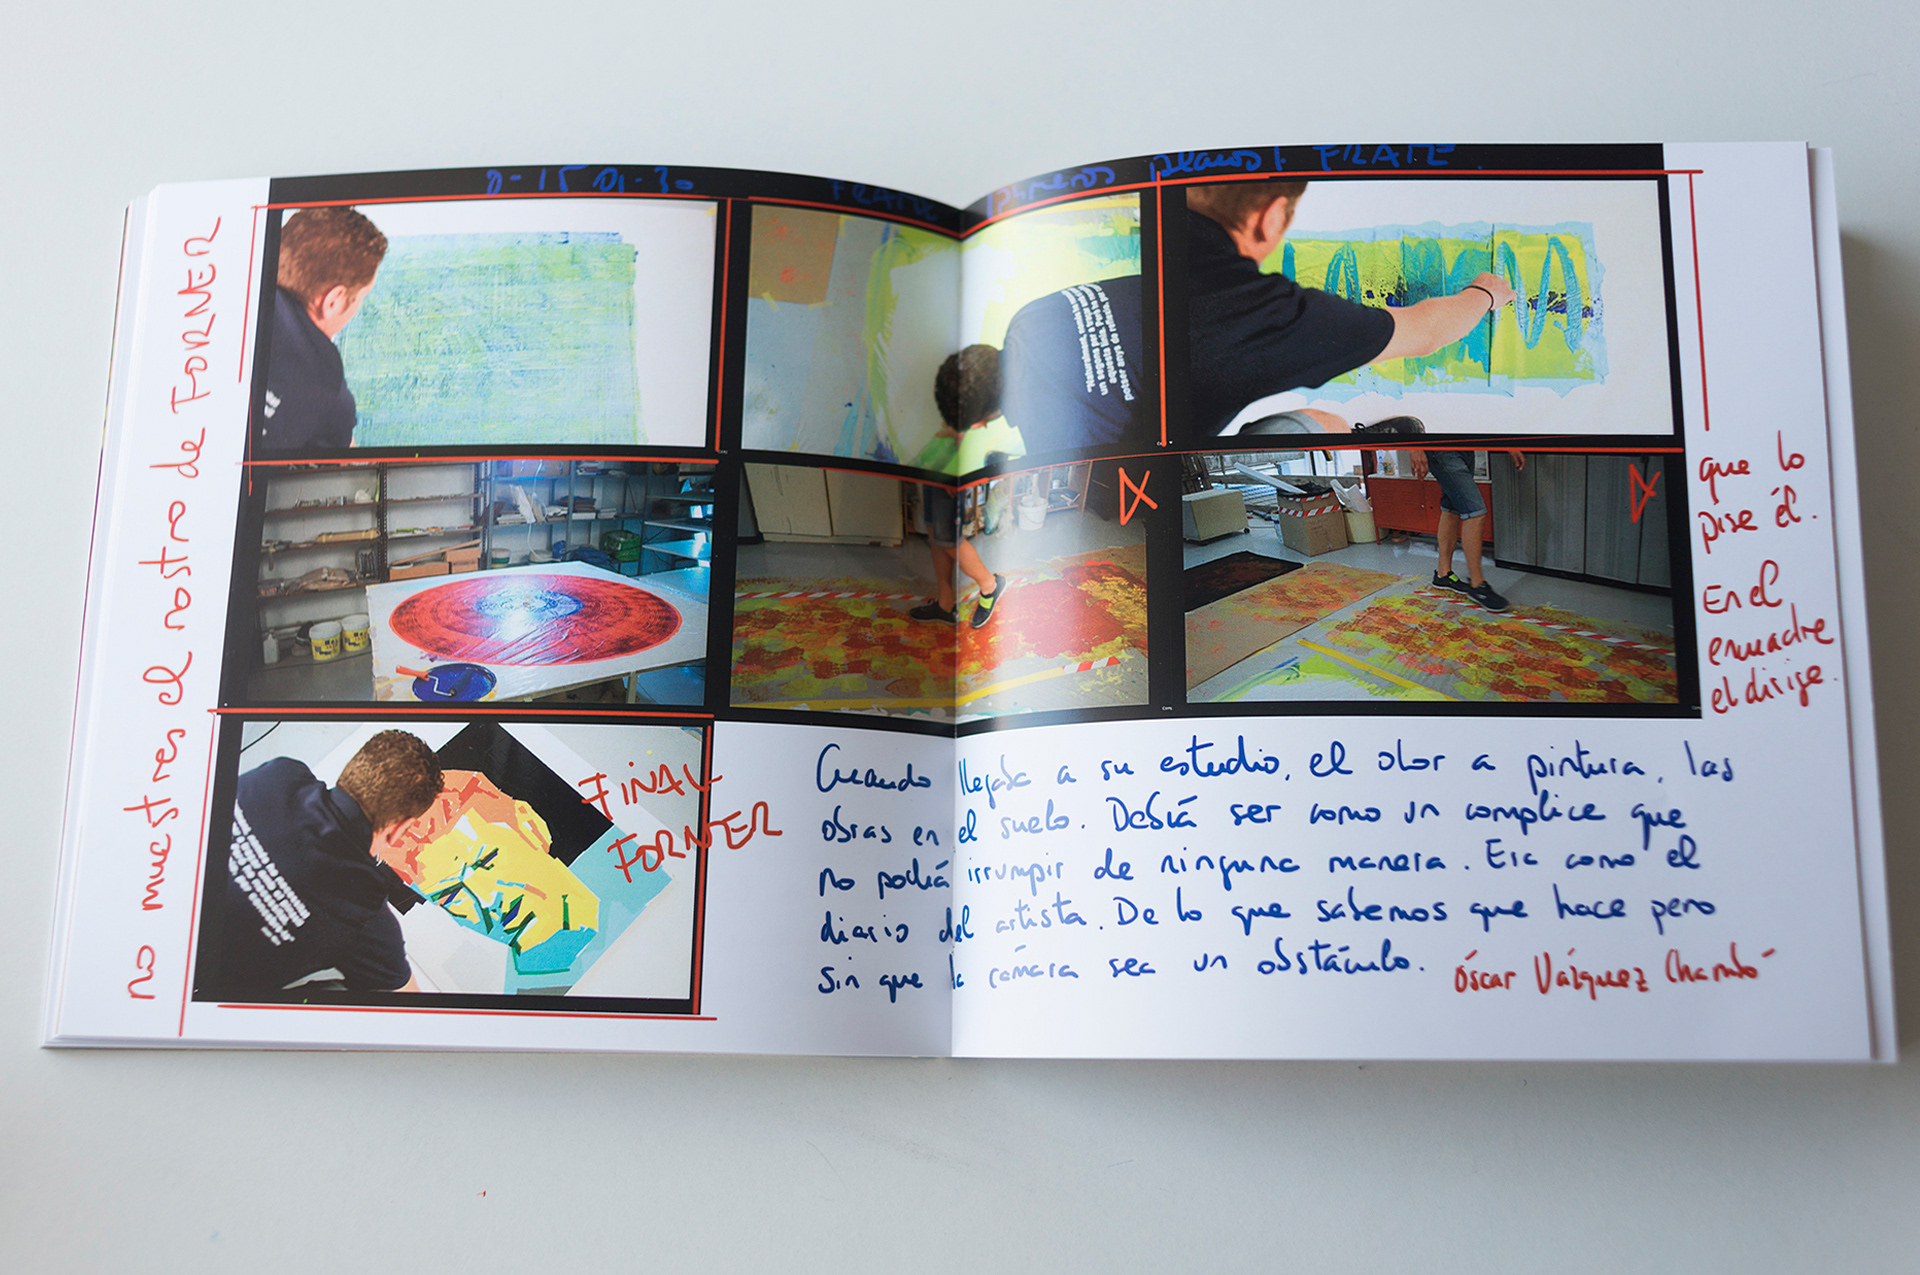 primeros planos FRAME
no muestres el rostro de FORNER
que lo
pise él.
En el
encuadre
el dirige.
FINAL
FORNER
Cuando llegaba a su estudio, el olor a pintura, las
obras en el suelo. Debía ser como un complice que
no podía irrumpir de ninguna manera. Era como el
diario del artista. De lo que sabemos que hace pero
sin que la cámara sea un obstáculo. Óscar Vázquez Chambó